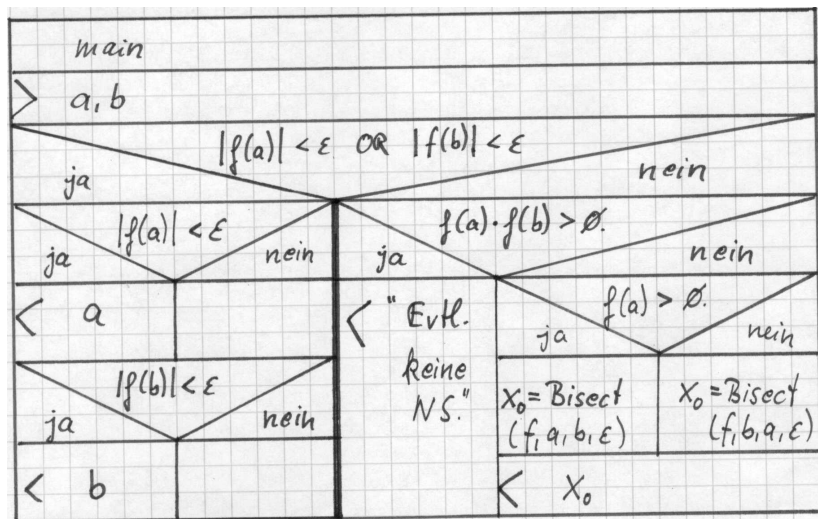 main
> a, b
|f(a)| < ε OR |f(b)| < ε
ja
nein
|f(a)| < ε
ja
nein
< a
|f(b)| < ε
ja
nein
< b
f(a)·f(b) > Ø.
ja
nein
< "Evtl.
keine
NS."
f(a) > Ø.
ja
nein
X₀ = Bisect
(f, a, b, ε)
X₀ = Bisect
(f, b, a, ε)
< X₀